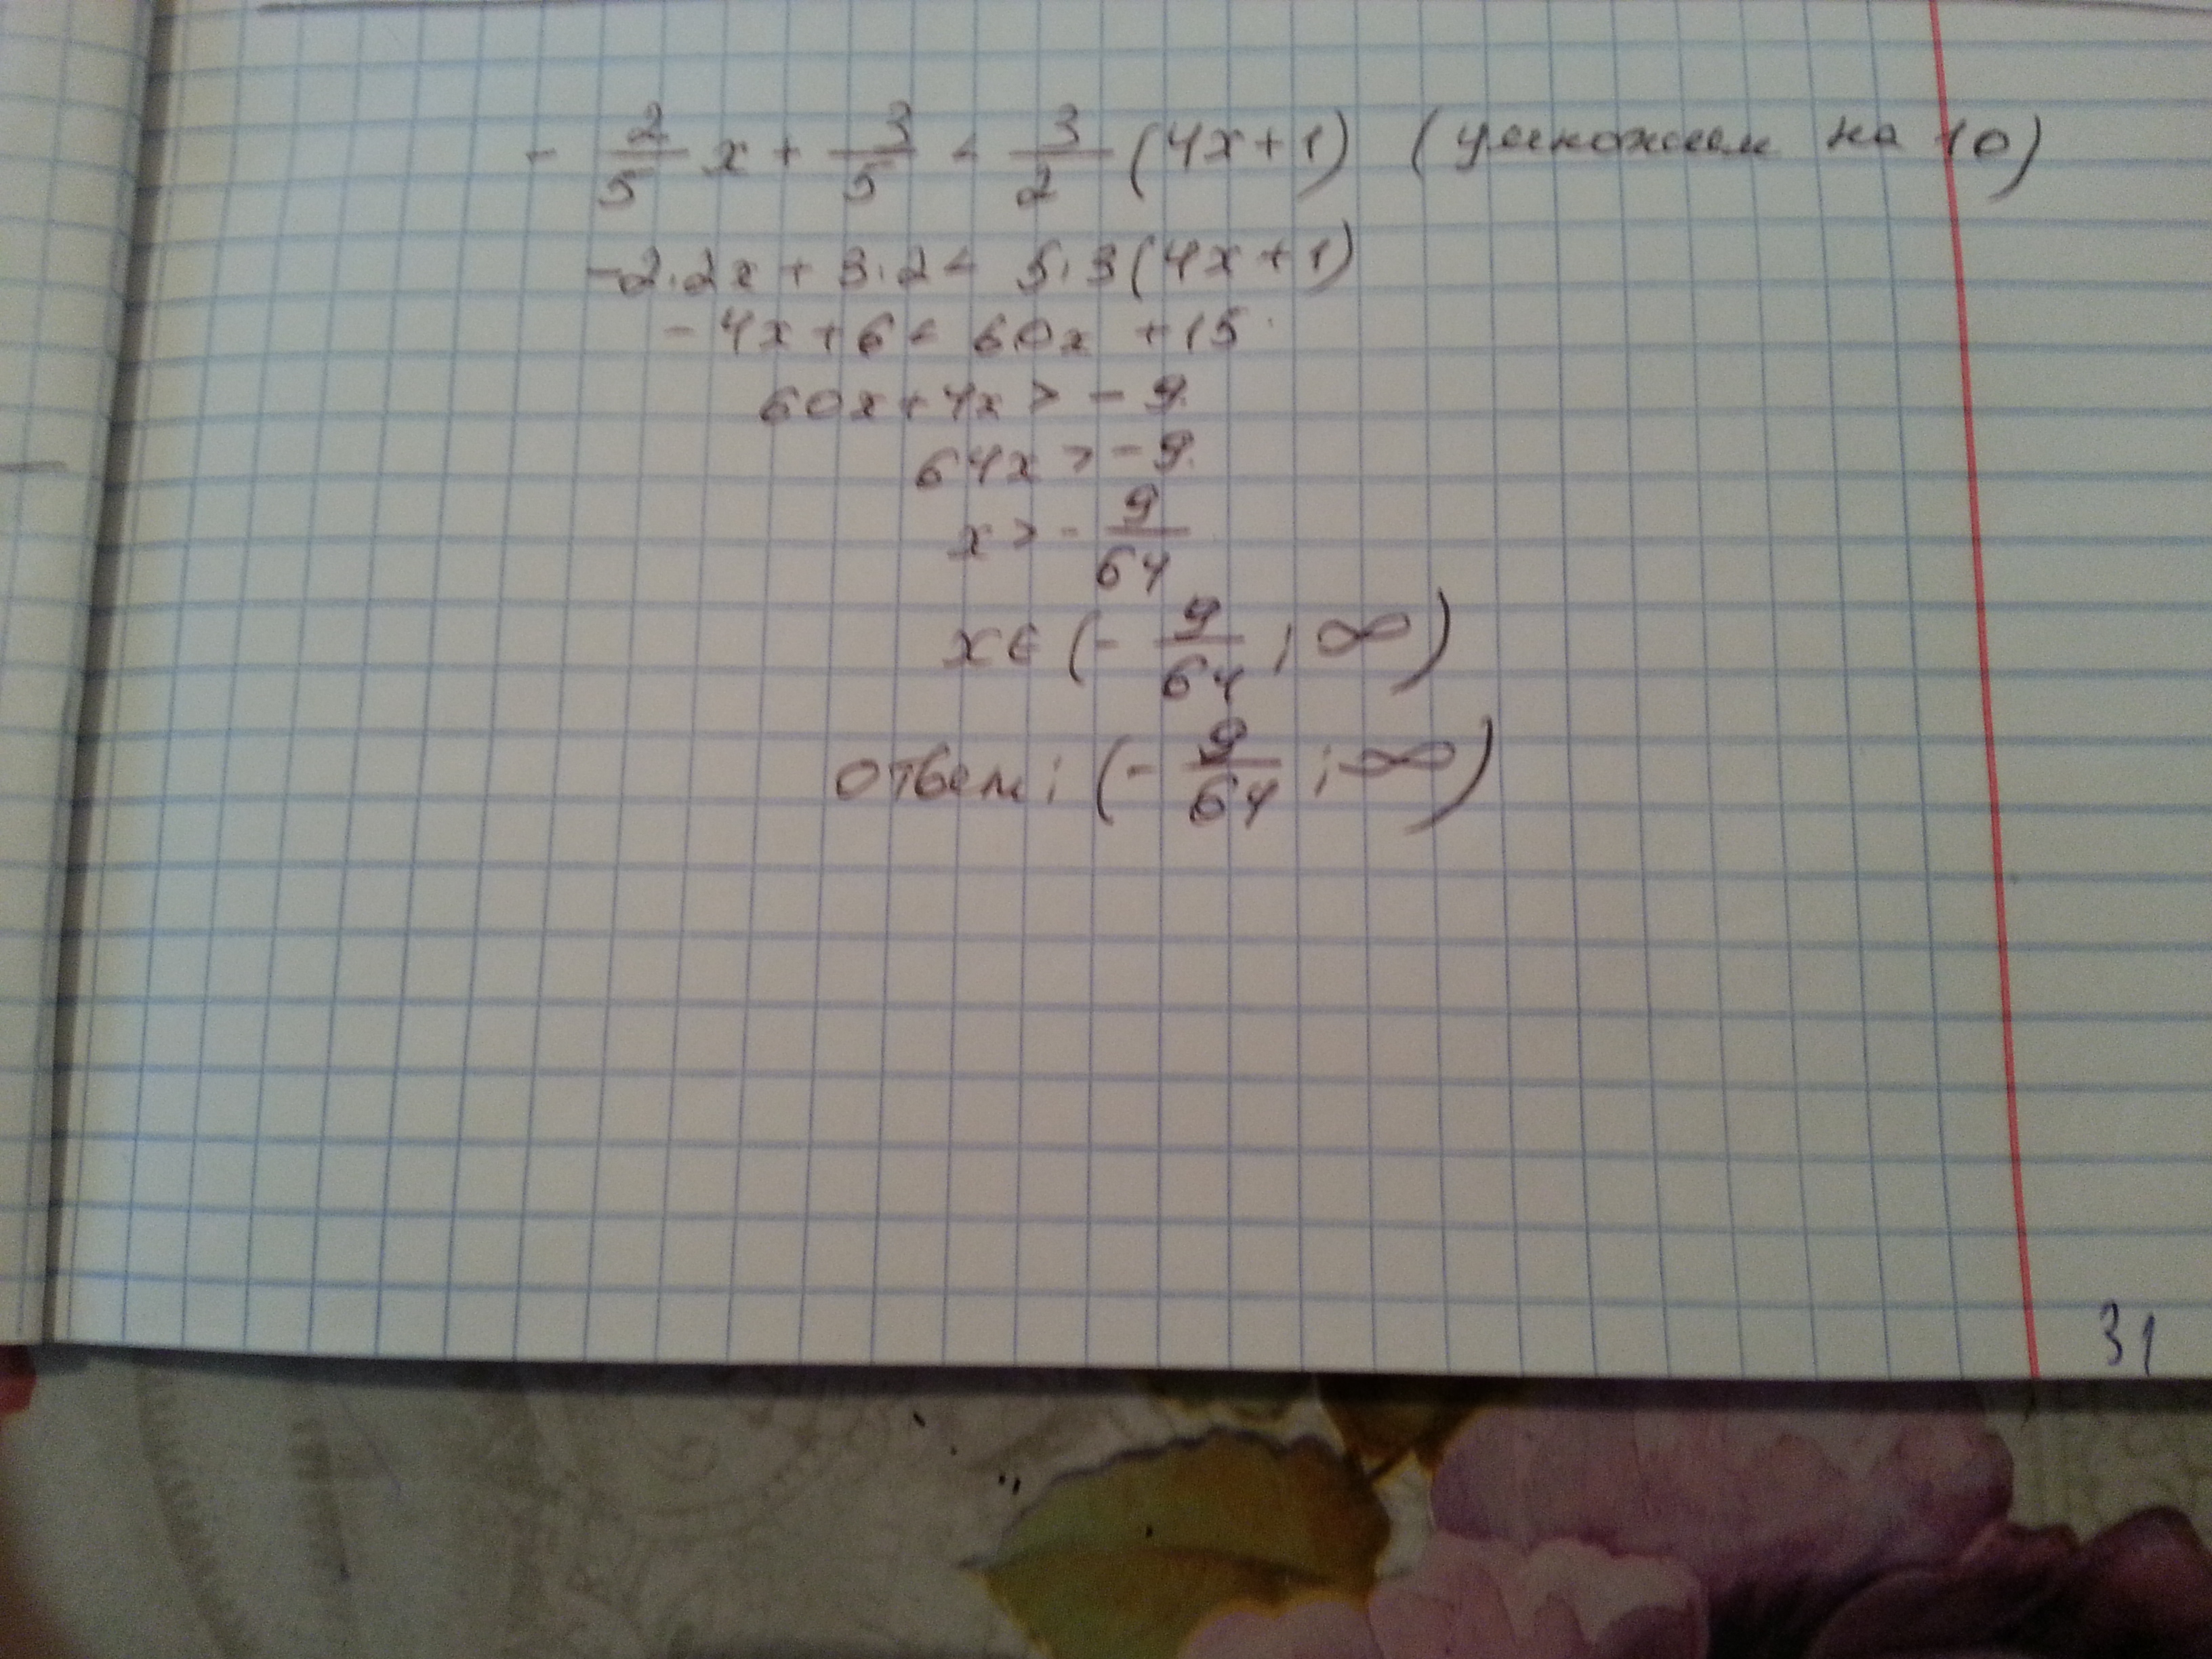 - 2/5 x + 3/5 < 3/2 (4x+1) (умножаем на 10)
-2·2x + 3·2 < 5·3(4x+1)
-4x+6 < 60x +15
60x+4x > -9
64x > -9
x > - 9/64
x ∈ (- 9/64 ; ∞)
ответ: (- 9/64 ; ∞)
31